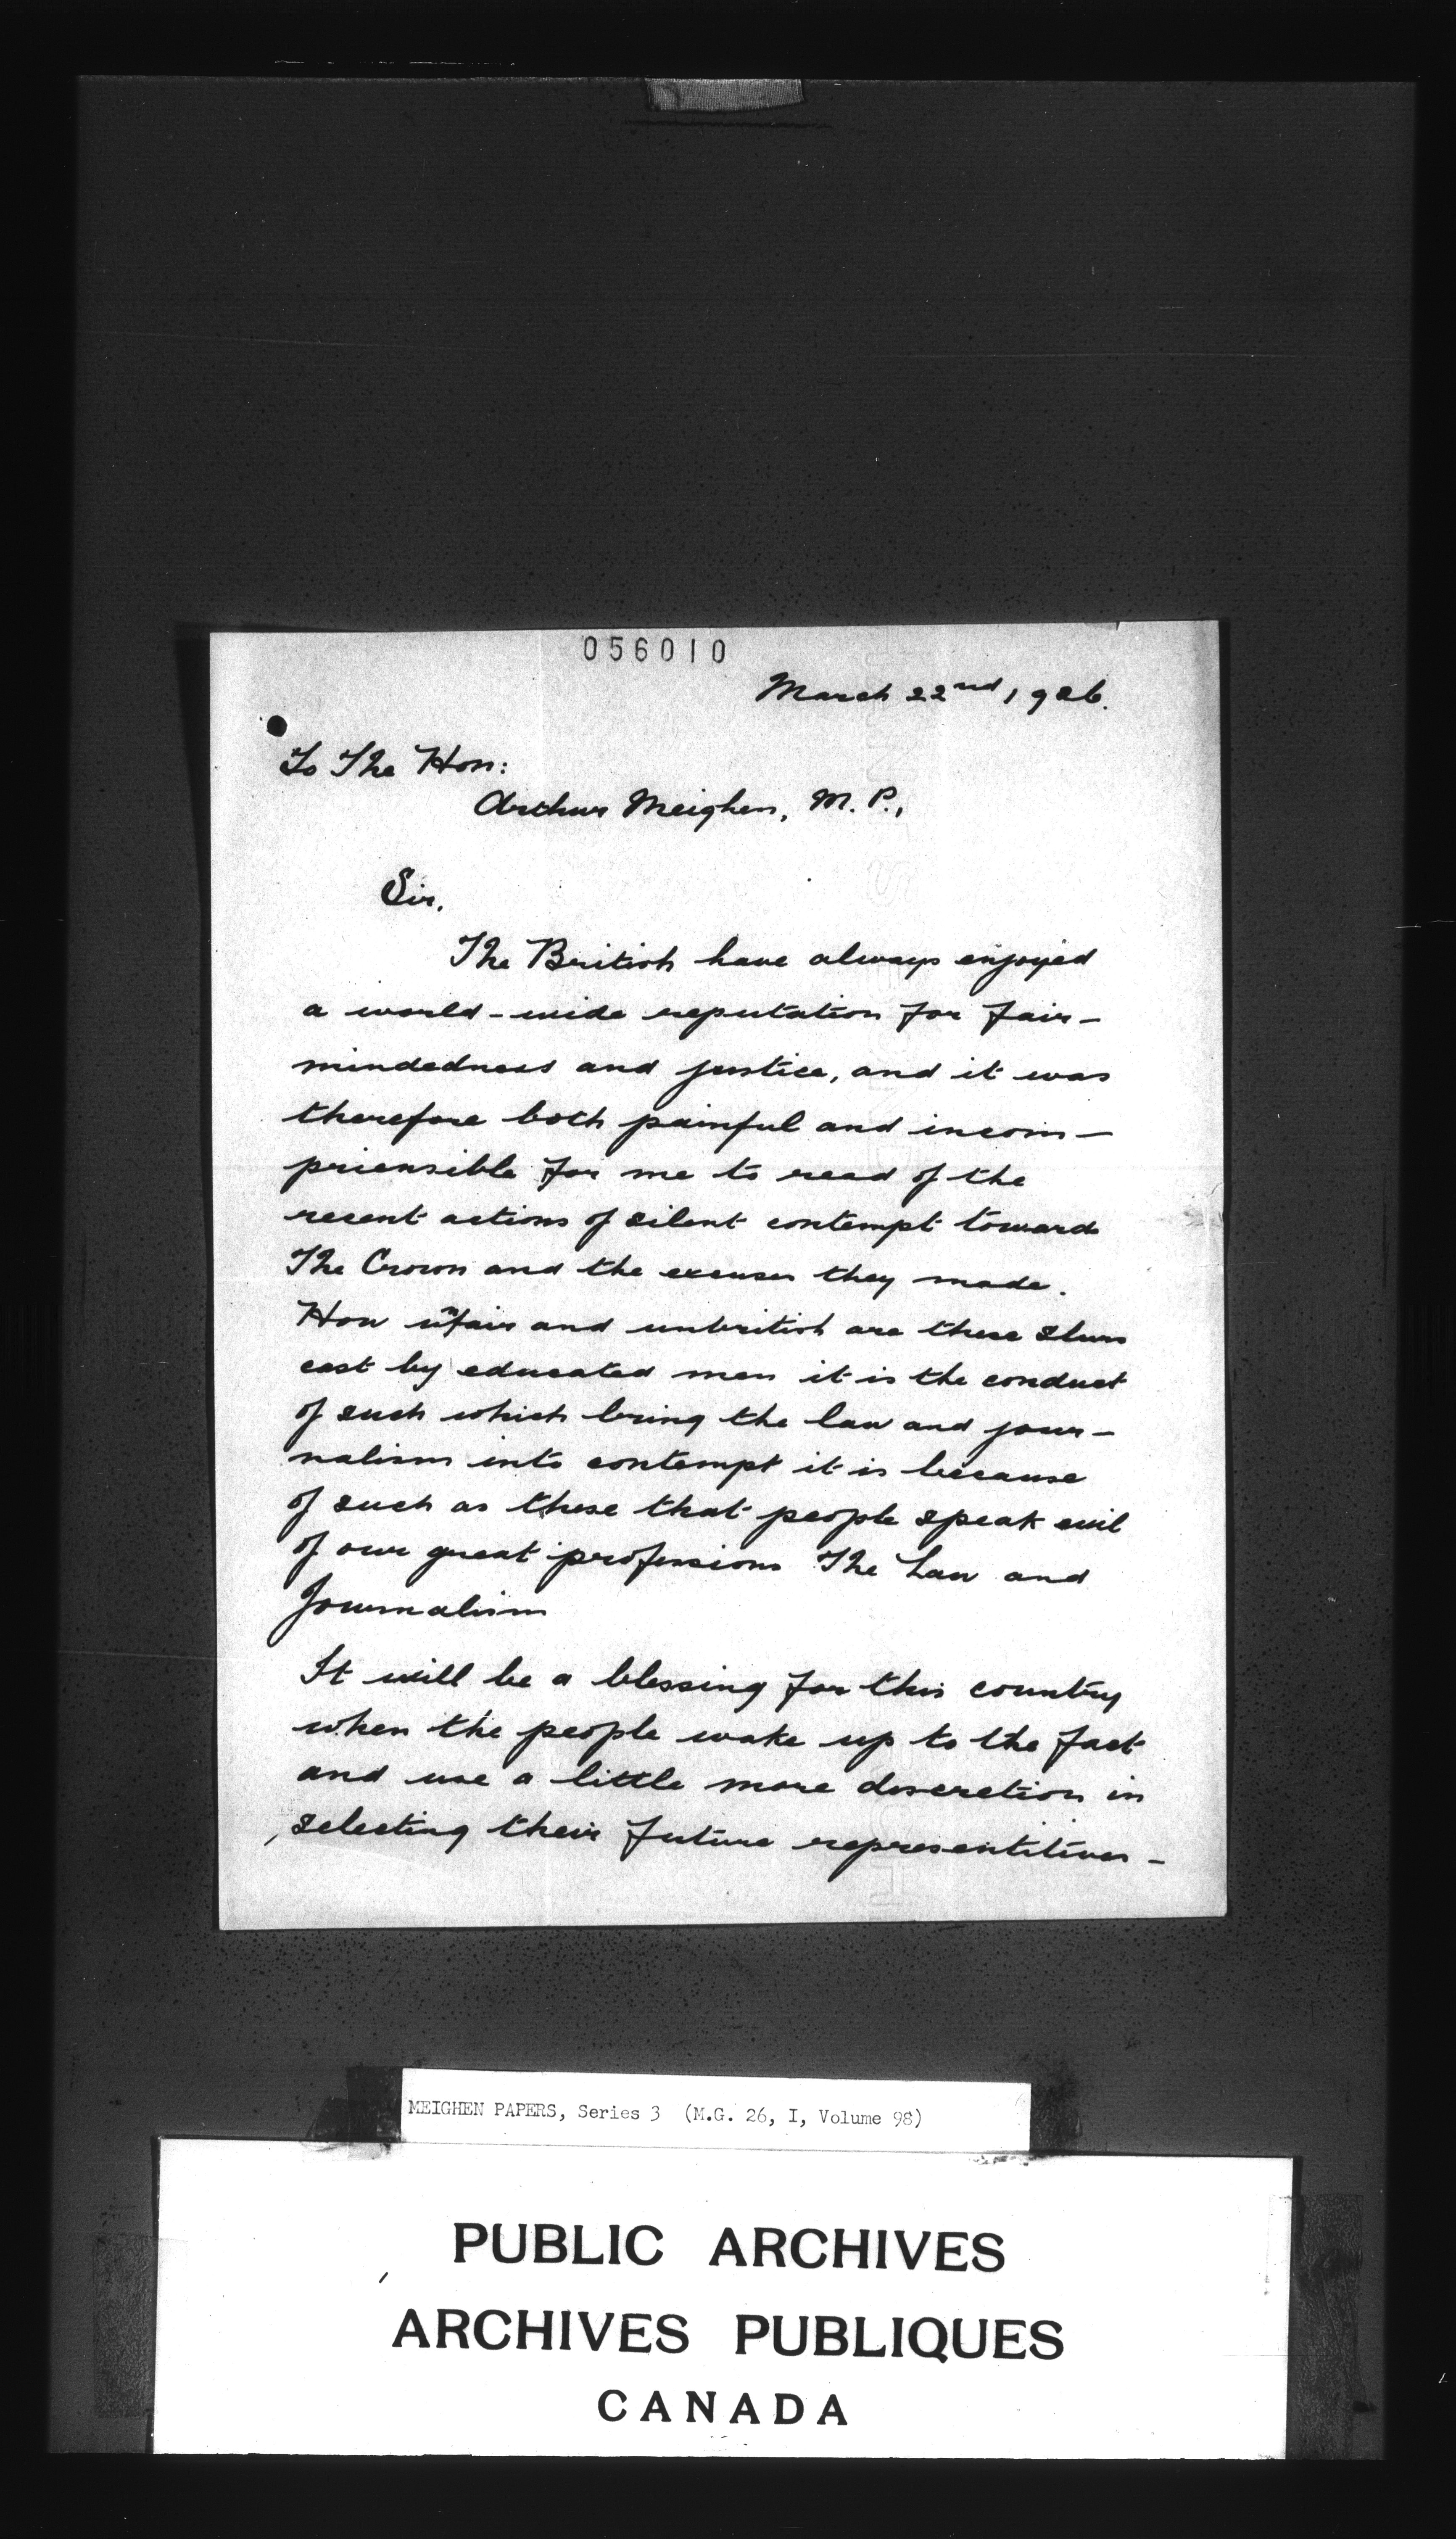 056010
March 22nd, 1926.
To The Hon:
Arthur Meighen, M. P.,
Sir,
The British have always enjoyed
a world-wide reputation for fair-
mindedness and justice, and it was
therefore both painful and incom-
priensible for me to read of the
recent actions of silent contempt toward
The Crown and the excuses they made.
How unfair and unbritish are these slurs
cast by educated men it is the conduct
of such which bring the law and jour-
nalism into contempt it is because
of such as these that people speak evil
of our great professions The Law and
Journalism
It will be a blessing for this country
when the people wake up to the fact
and use a little more discretion in
selecting their future representitives -
MEIGHEN PAPERS, Series 3 (M.G. 26, I, Volume 98)
PUBLIC ARCHIVES
ARCHIVES PUBLIQUES
CANADA